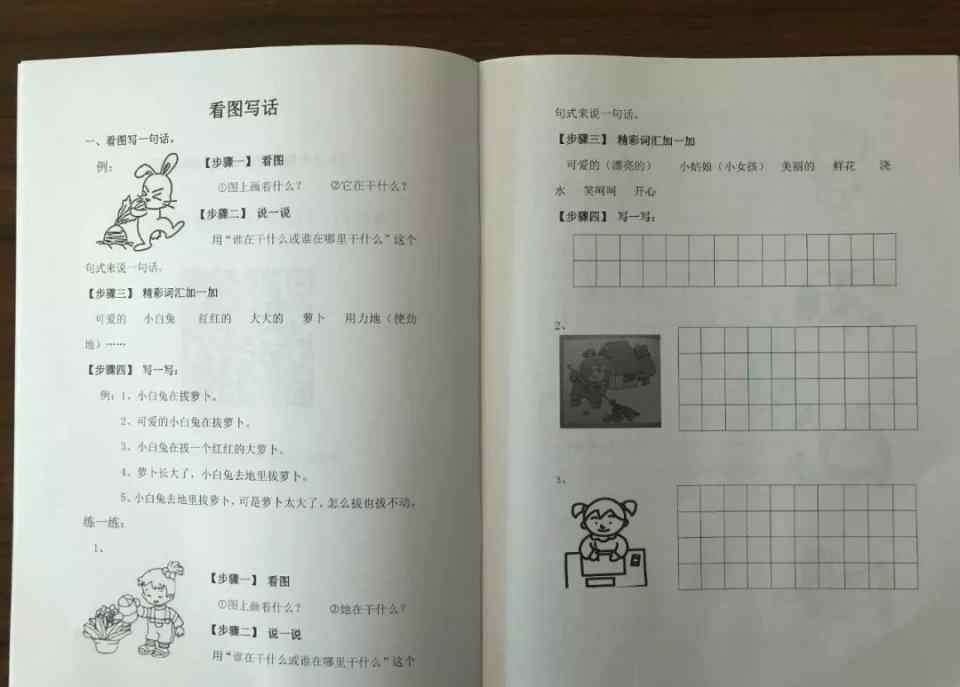 看图写话
一、看图写一句话。
例：
【步骤一】 看图
①图上画着什么？ ②它在干什么？
【步骤二】 说一说
用“谁在干什么或谁在哪里干什么”这个
句式来说一句话。
【步骤三】 精彩词汇加一加
可爱的 小白兔 红红的 大大的 萝卜 用力地（使劲
地）……
【步骤四】 写一写：
例：1、小白兔在拔萝卜。
2、可爱的小白兔在拔萝卜。
3、小白兔在拔一个红红的大萝卜。
4、萝卜长大了，小白兔去地里拔萝卜。
5、小白兔去地里拔萝卜，可是萝卜太大了，怎么拔也拔不动。
练一练：
1、
【步骤一】 看图
①图上画着什么？ ②她在干什么？
【步骤二】 说一说
用“谁在干什么或谁在哪里干什么”这个
句式来说一句话。
【步骤三】 精彩词汇加一加
可爱的（漂亮的） 小姑娘（小女孩） 美丽的 鲜花 浇
水 笑呵呵 开心
【步骤四】 写一写：
2、
3、